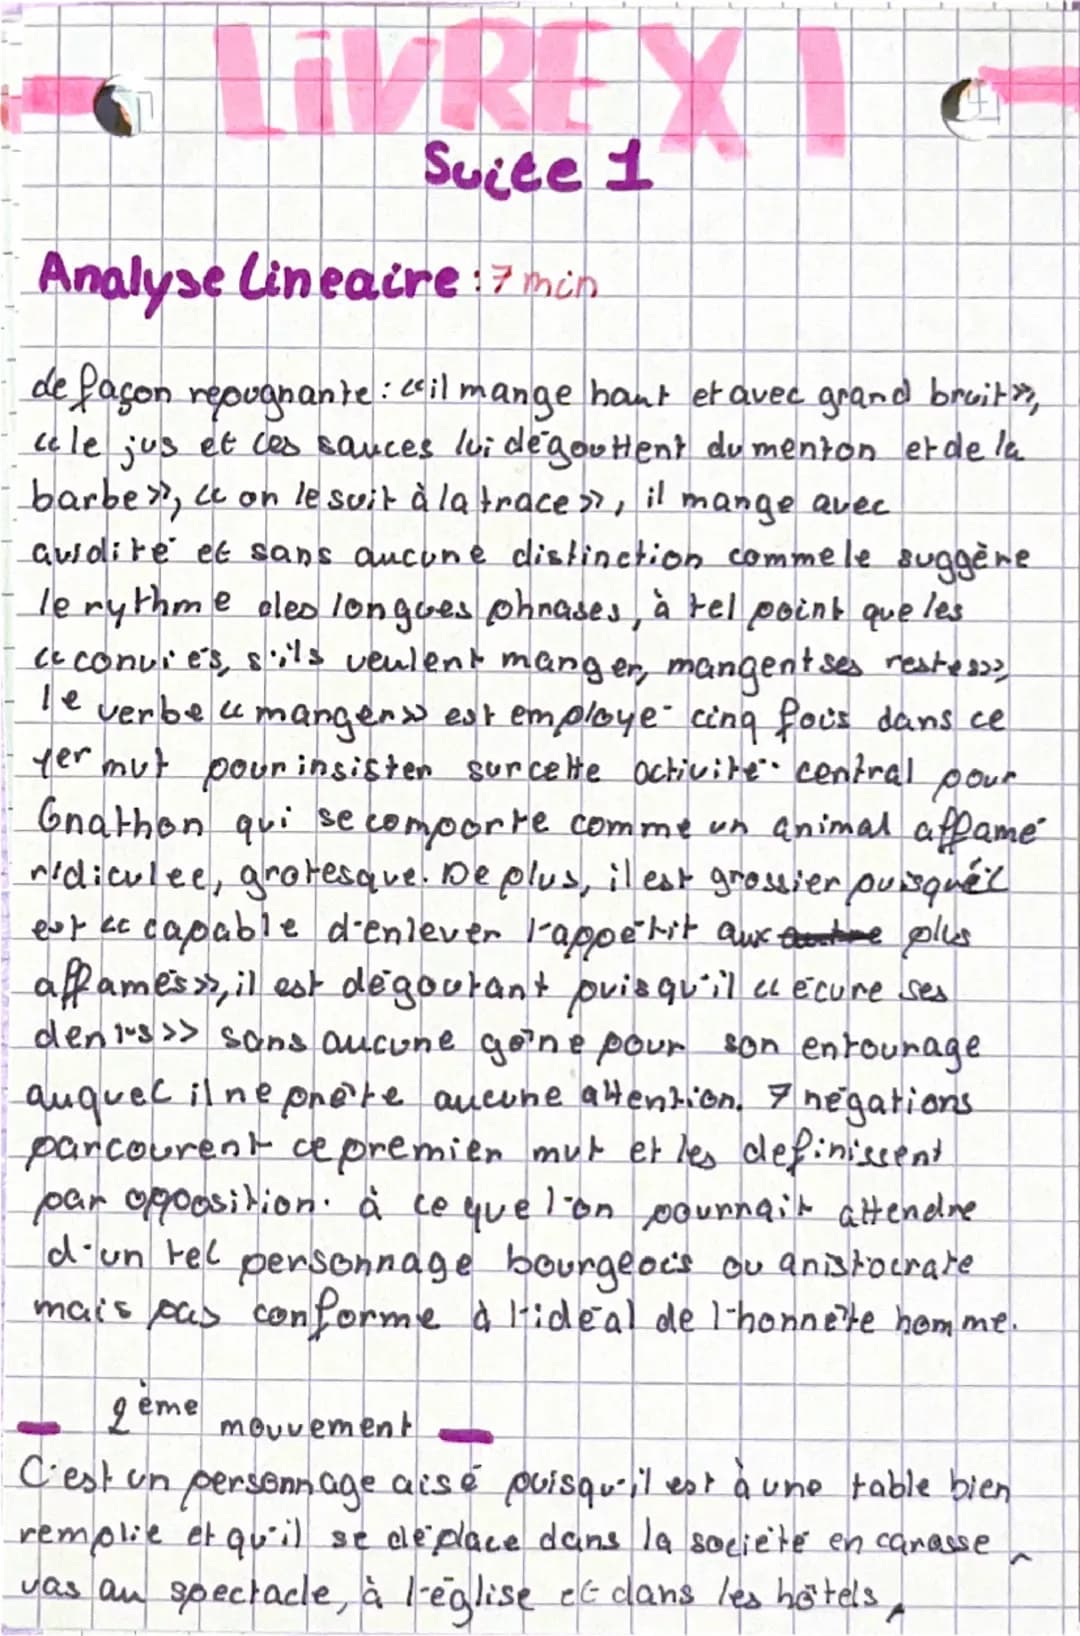 LiVRE XI
Suite 1
Analyse Lineaire : 7 min
de façon repugnante : «il mange haut et avec grand bruit»,
«le jus et les sauces lui dégouttent du menton et de la
barbe», «on le suit à la trace», il mange avec
avidité et sans aucune distinction comme le suggère
le rythme des longues phrases, à tel point que les
«conviés, s'ils veulent manger, mangent ses restes»,
le verbe «manger» est employé cinq fois dans ce
1er mvt pour insister sur cette activité central pour
Gnathon qui se comporte comme un animal affamé
ridiculee, grotesque. De plus, il est grossier puisqu'il
est «capable d'enlever l'appétit aux plus
affamés», il est dégoutant puisqu'il «écure ses
dents» sans aucune gêne pour son entourage
auquel il ne prête aucune attention. 7 négations
parcourent ce premier mvt et les definissent
par opposition à ce que l'on pourrait attendre
d'un tel personnage bourgeois ou aristocrate
mais pas conforme à l'idéal de l'honnête homme.
2ème mouvement
C'est un personnage aisé puisqu'il est à une table bien
remplie et qu'il se déplace dans la societé en carasse,
vas au spectacle, à l'église et dans les hôtels,